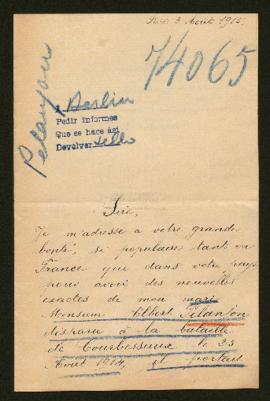 Paris 3 Août 1915.
74065
Pelanjon
A Berlin
Pedir informes
Que se hace así
Devolver sello
Sire,
Je m'adresse à votre grande
bonté, si populaire tant en
France que dans votre pays
pour avoir des nouvelles
exactes de mon mari
Monsieur Filbert
disparu à la bataille
de Courbesseux le 25
Août 1914, et portant